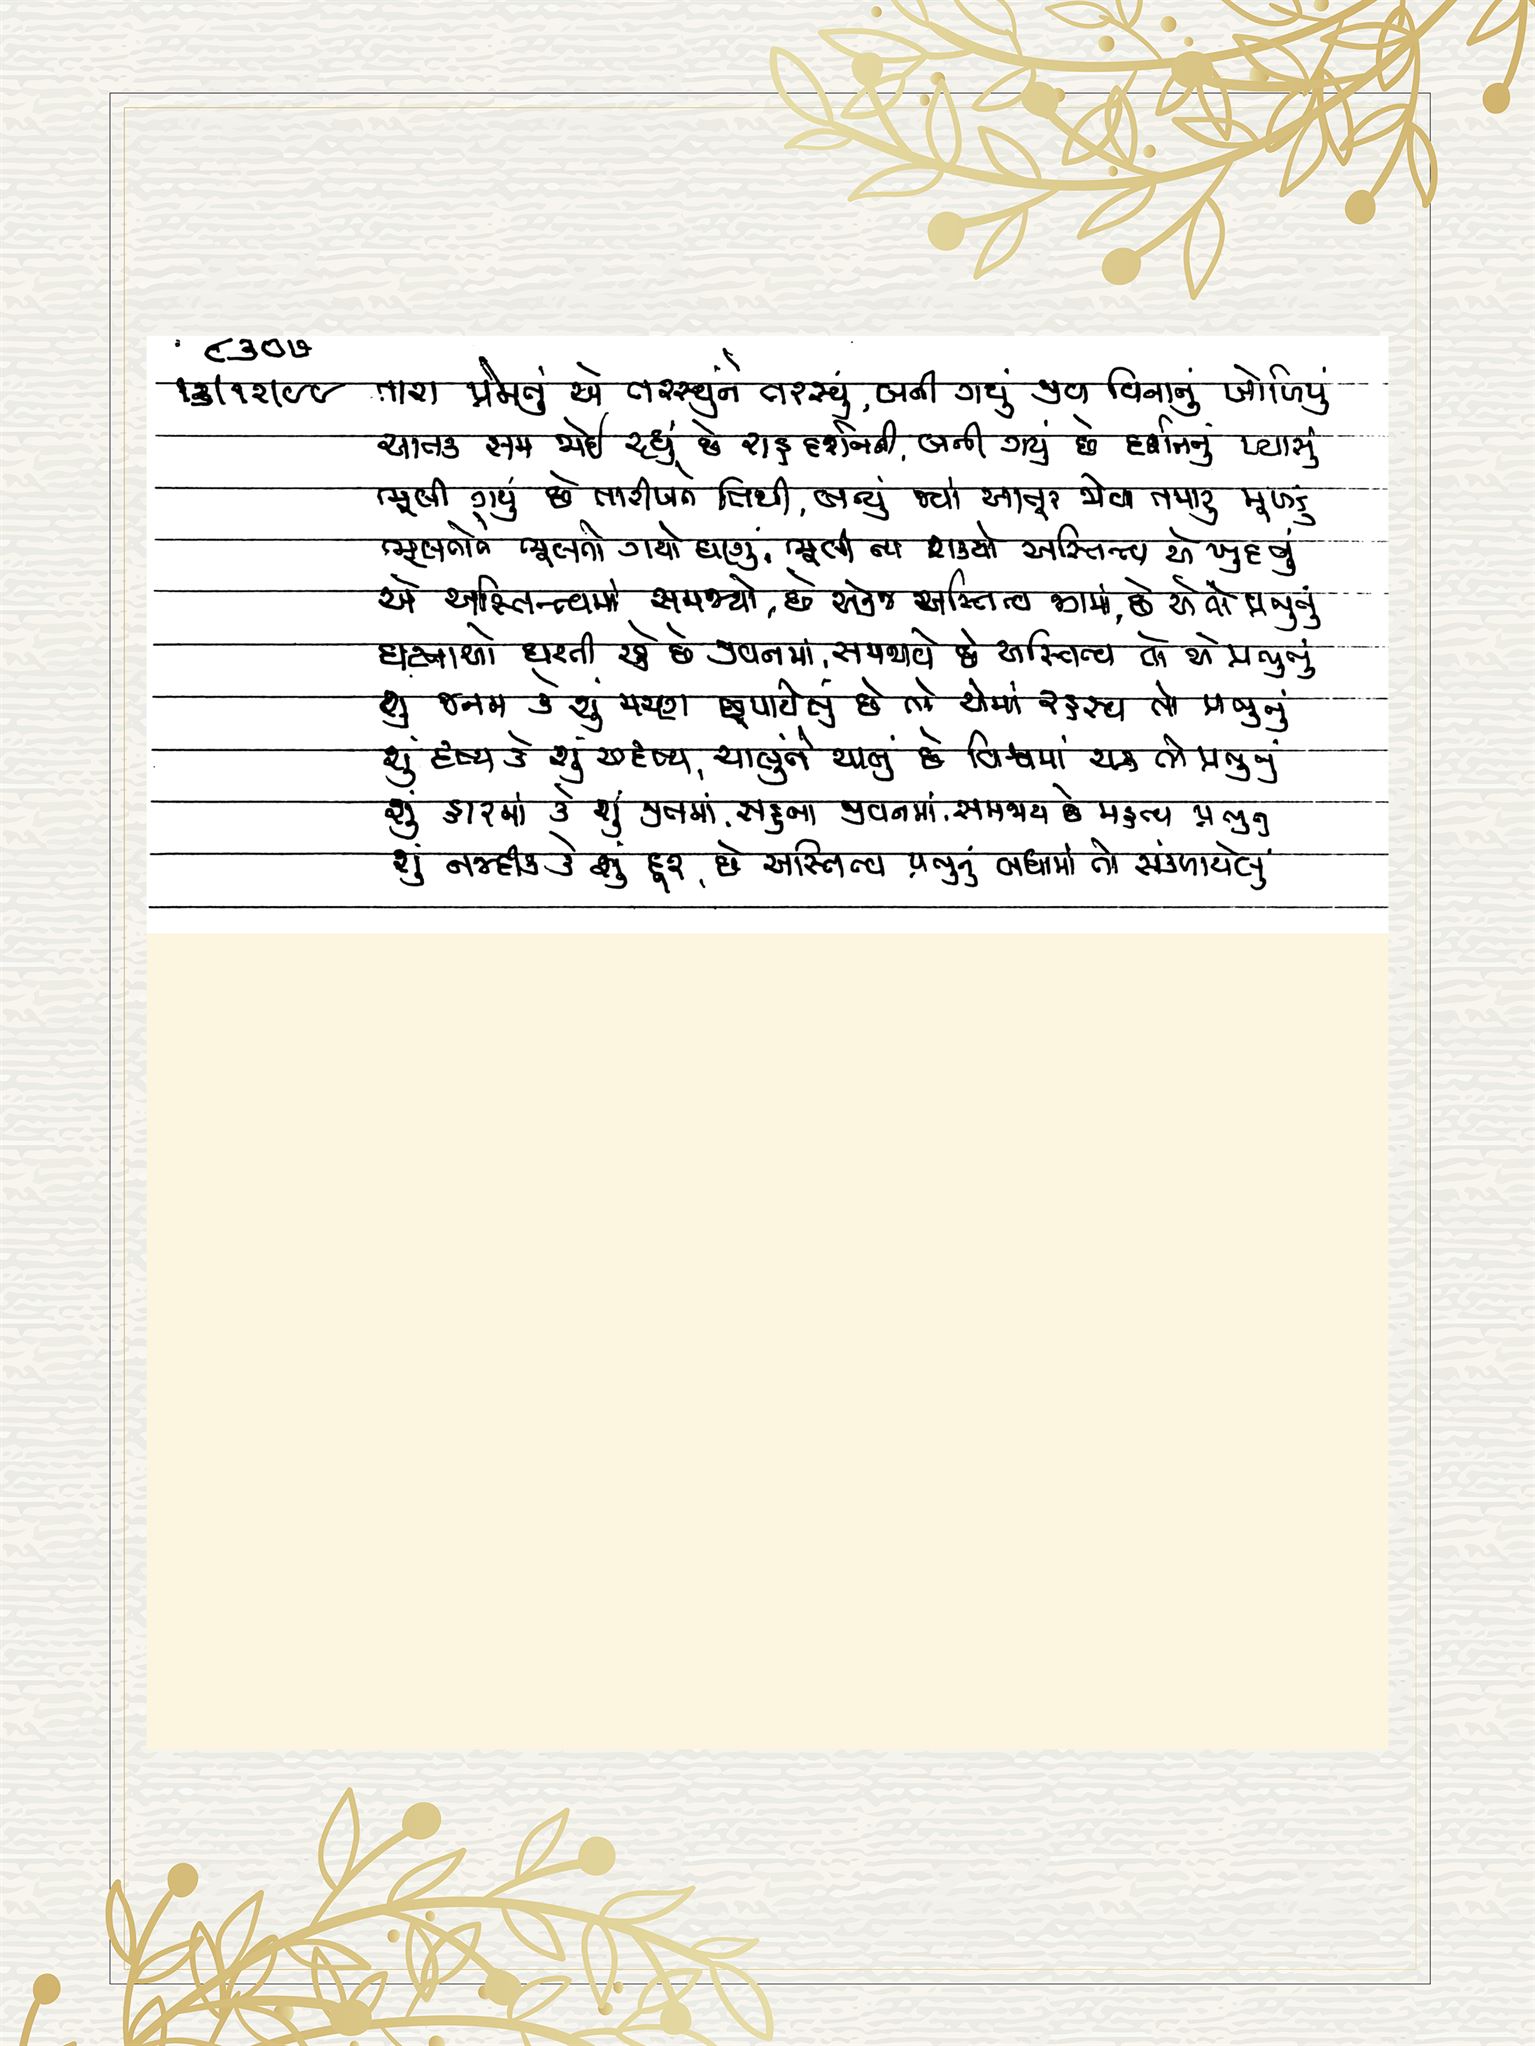 ૮૩૦૭
૧૩/૧૨/૯૯ તારા પ્રેમનું એ તરસ્યુંને તરસ્યું, બની ગયું જીવ વિનાનું ખોળિયું
ચાતક સમ જોઈ રહ્યું છે રાહ દર્શનની, બની ગયું છે દર્શનનું પ્યાસું
ભૂલી ગયું છે તારીખને તિથી, બન્યું જ્યાં આતૂર જોવા તમારુ મૂખડું
ભૂલતોને ભૂલતો ગયો ઘણું, ભૂલી ના શક્યો અસ્તિત્વ એ ખુદનું
એ અસ્તિત્વમાં સમજ્યો, છે એકજ અસ્તિત્વ જગમાં, છે એ તો પ્રભુનું
ઘટનાઓ ઘટતી રહે છે જીવનમાં, સમજાવે છે અસ્તિત્વ તો એ પ્રભુનું
શું જનમ કે શું મરણ છૂપાયેલું છે તો એમાં રહસ્ય તો પ્રભુનું
શું દૃશ્ય કે શું અદૃશ્ય, ચાલુંને ચાલું છે વિશ્વમાં ચક્ર તો પ્રભુનું
શું હારમાં કે શું જીતમાં, સહુના જીવનમાં, સમજાય છે મહત્વ પ્રભુનુ
શું નજદીક કે શું દૂર, છે અસ્તિત્વ પ્રભુનું બધામાં તો સંકળાયેલું